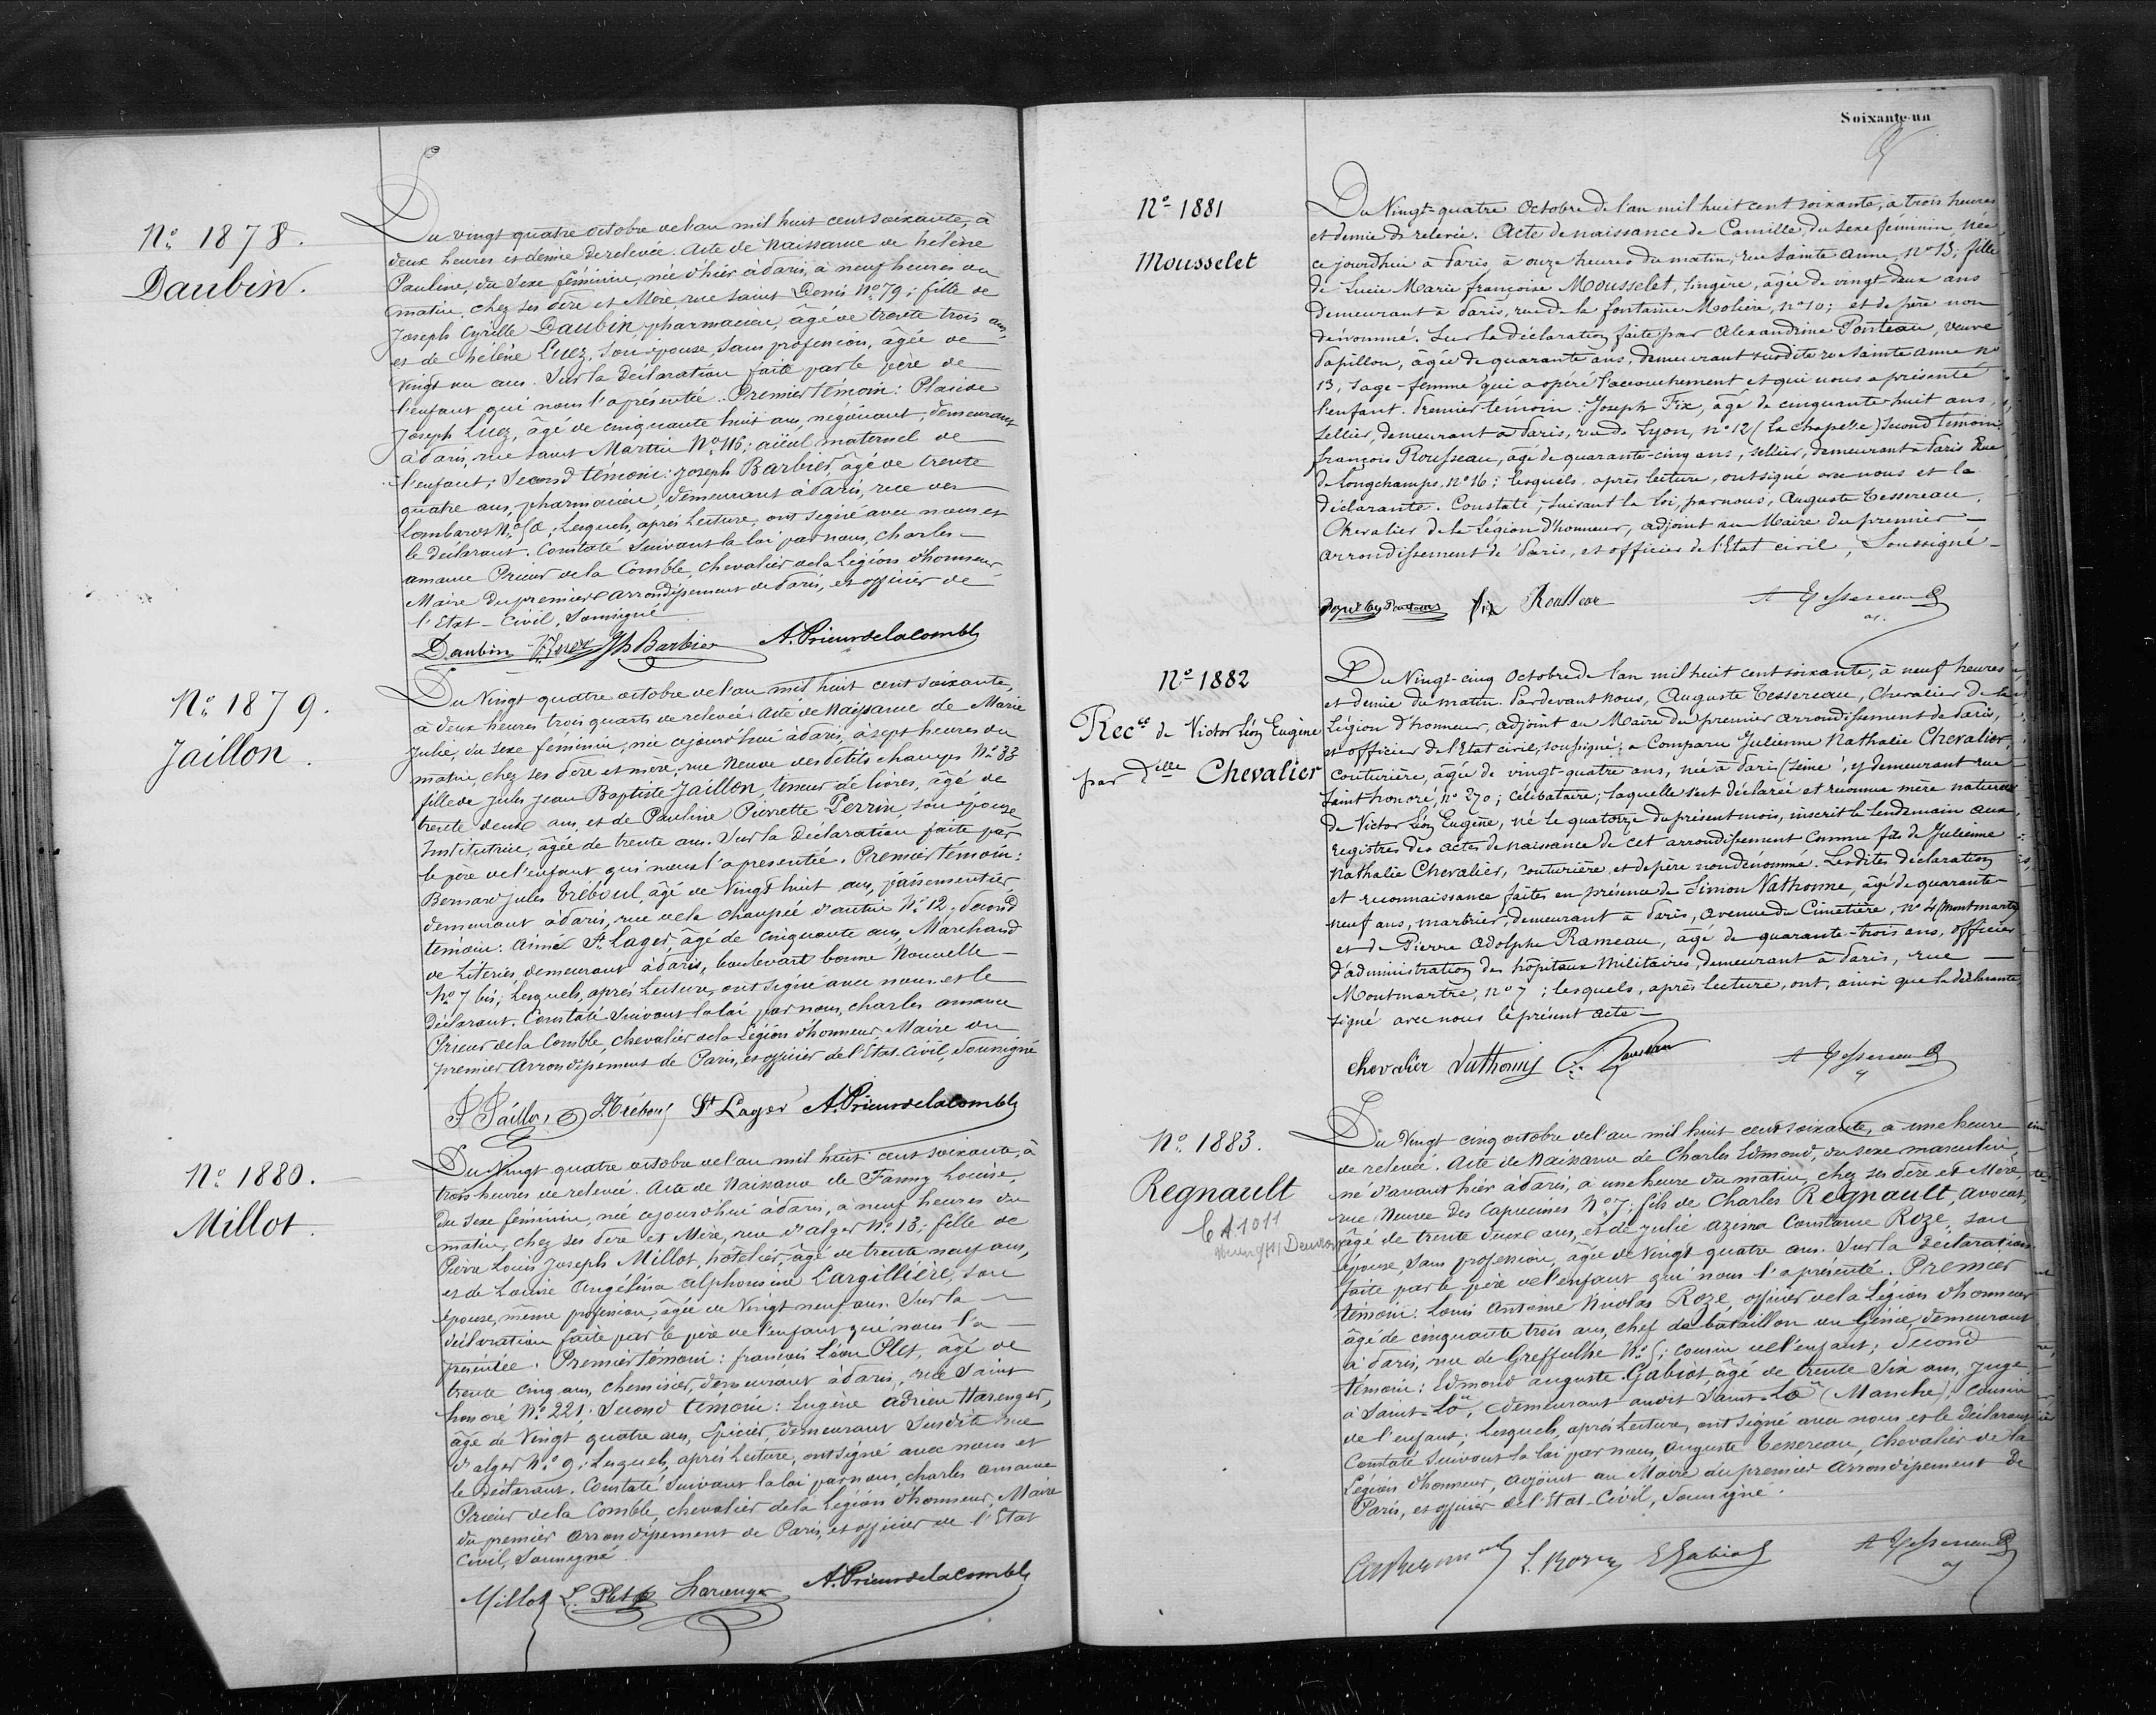 No. 1878.
Daubin.
Du vingt quatre octobre de l'an mil huit cent soixante, à
deux heures et demie de relevée. Acte de Naissance de hélène
Pauline, du sexe féminin, née d'hier à Paris, à neuf heures du
matin, chez ses Père et Mère rue Saint Denis No. 79; fille de
Joseph Cyrille Daubin, pharmacien, âgé de trente trois ans,
et de hélène Luez, son épouse, sans profession, âgée de
vingt un ans. Sur la Déclaration faite par le père de
l'enfant qui nous l'a présentée. Premier témoin: Placide
Joseph Luez, âgé de cinquante huit ans, négociant, demeurant
à Paris, rue Saint Martin No. 116; aïeul maternel de
l'enfant; Second témoin: Joseph Barbier, âgé de trente
quatre ans, pharmacien, demeurant à Paris, rue des
Lombards No. ; Lesquels, après Lecture, ont signé avec nous et
le déclarant. Constaté Suivant la loi par nous, Charles
amance Prieur de la Comble, chevalier de la Légion d'honneur
Maire du premier arrondissement de Paris, et officier de
l'Etat-Civil, Soussigné
Daubin Luez Jh Barbier A. Prieur de la Comble
No. 1879.
Jaillon.
Du Vingt quatre octobre de l'an mil huit cent soixante,
à deux heures trois quarts de relevée. Acte de Naissance de Marie
Julie, du sexe féminin, née ce jourd'hui à Paris, à sept heures du
matin, chez ses Père et mère, rue Neuve des Petits champs No. 33
fille de Jules Jean Baptiste Jaillon, teneur de livres, âgé de
trente deux ans, et de Pauline Pierrette Perrin, son épouse
Institutrice, âgée de trente ans. Sur la Déclaration faite par
le père de l'enfant qui nous l'a présentée. Premier témoin:
Bernard Jules Tréboul, âgé de Vingt huit ans, passementier
demeurant à Paris, rue de la chaussée d'antin No. 12; Second
témoin: aimé St. Lager, âgé de cinquante ans, Marchand
de Literies, demeurant à Paris, boulevart bonne Nouvelle
No. 7 bis; Lesquels, après Lecture, ont signé avec nous et le
Déclarant. Constaté Suivant la loi par nous, charles amance
Prieur de la Comble, chevalier de la Légion d'honneur, Maire du
premier Arrondissement de Paris, et officier de l'Etat-Civil, Soussigné
J Jaillon J. Tréboul St Lager A. Prieur de la Comble
No. 1880.
Millot.
Du Vingt quatre octobre de l'an mil huit cent soixante, à
trois heures de relevée. Acte de Naissance de Fanny Louise,
Du sexe féminin, née ce jourd'hui à Paris, à neuf heures du
matin, chez ses Père et Mère, rue d'alger No. 13; fille de
Pierre Louis Joseph Millot, hôtelier, âgé de trente neuf ans,
et de Louise Angélina alphonsine Largillière, son
épouse, même profession, âgée de Vingt neuf ans. Sur la
déclaration faite par le père de l'enfant qui nous l'a
présentée. Premier témoin: françois Léon Plet, âgé de
trente cinq ans, chemisier, demeurant à Paris, rue Saint
honoré No. 221; Second témoin: Eugène adrien Harenger,
âgé de Vingt quatre ans, Epicier, demeurant Susdite rue
d'alger No. 9; Lesquels, après Lecture, ont signé avec nous et
le Déclarant. Constaté Suivant la loi par nous, charles amance
Prieur de la Comble, chevalier de la Légion d'honneur, Maire
du premier arrondissement de Paris, et officier de l'Etat
Civil, Soussigné
Millot L. Plet Harenger A. Prieur de la Comble
Soixante-un
No. 1881
Mousselet
Du Vingt-quatre Octobre de l'an mil huit cent soixante, à trois heures
et demie de relevée. Acte de naissance de Camille, du sexe féminin, née
ce jourd'hui à Paris, à onze heures du matin, rue Sainte Anne, no 13, fille
de Lucie Marie françoise Mousselet, lingère, âgée de vingt-deux ans
demeurant à Paris, rue de la fontaine Molière, no 10; et de père non
dénommé. Sur la déclaration faite par Alexandrine Ponteau, veuve
Papillon, âgée de quarante ans, demeurant susdite rue Sainte Anne no
13, sage-femme qui a opéré l'accouchement et qui nous a présenté
l'enfant. Premier témoin: Joseph Fix, âgé de cinquante-huit ans,
sellier, demeurant à Paris, rue de Lyon, no 12 (La chapelle) Second témoin,
françois Rousseau, âgé de quarante-cinq ans, sellier, demeurant à Paris Rue
de Longchamps, no 16; lesquels, après lecture, ont signé avec nous et la
déclarante. Constaté, suivant la loi, par nous, Auguste Tessereau,
Chevalier de la Légion d'honneur, adjoint au Maire du premier
arrondissement de Paris, et officier de l'Etat civil, Soussigné
Fix Rousseau A Tessereau
No. 1882
Recce de Victor Léon Eugène
par Dlle Chevalier
Du Vingt-cinq Octobre de l'an mil huit cent soixante, à neuf heures
et demie du matin. Pardevant nous, Auguste Tessereau, Chevalier de la
Légion d'honneur, adjoint au Maire du premier arrondissement de Paris,
et officier de l'Etat civil, soussigné; a Comparu Julienne Nathalie Chevalier,
couturière, âgée de vingt-quatre ans, née à Paris (Seine), y demeurant rue
Saint honoré, no 270; célibataire; laquelle s'est déclarée et reconnue mère naturelle
de Victor Léon Eugène, né le quatorze du présent mois, inscrit le lendemain aux
registres des actes de naissance de cet arrondissement comme fils de Julienne
Nathalie Chevalier, couturière, et de père non dénommé. Lesdites déclaration
et reconnaissance faites en présence de Simon Vathonne, âgé de quarante-
neuf ans, marbrier, demeurant à Paris, avenue du Cimetière, no 4 (Montmartre)
et de Pierre Adolphe Rameau, âgé de quarante-trois ans, officier
d'administration des hôpitaux Militaires, demeurant à Paris, rue
Montmartre, no 7; lesquels, après lecture, ont, ainsi que la déclarante,
signé avec nous le présent acte
chevalier Rameau A Tessereau
No. 1883.
Regnault
Du Vingt cinq octobre de l'an mil huit cent soixante, à une heure
de relevée. Acte de Naissance de Charles Edmond, du sexe masculin,
né d'avant hier à Paris, à une heure du matin, chez ses Père et Mère,
rue Neuve Des Capucines No. 7; fils de Charles Regnault, avocat,
âgé de trente deux ans, et de Julie azema Constance Roze, son
épouse, sans profession, âgée de Vingt quatre ans. Sur la Déclaration
faite par le père de l'enfant qui nous l'a présenté. Premier
témoin: Louis Antoine Nicolas Roze, officier de la Légion d'honneur
âgé de cinquante trois ans, chef de bataillon du Génie, demeurant
à Paris, rue de Greffulhe No. ; cousin de l'enfant; Second
témoin: Edmond auguste Gabiot, âgé de trente Six ans, Juge
à Saint-Lô, demeurant audit Saint-Lô (Manche), cousin
de l'enfant; Lesquels, après Lecture, ont signé avec nous et le déclarant
Constaté Suivant la loi par nous, Auguste Tessereau, Chevalier de la
Légion d'honneur, Adjoint au Maire du premier Arrondissement de
Paris, et officier de l'Etat-Civil, Soussigné.
L. Roze E Gabiot A Tessereau